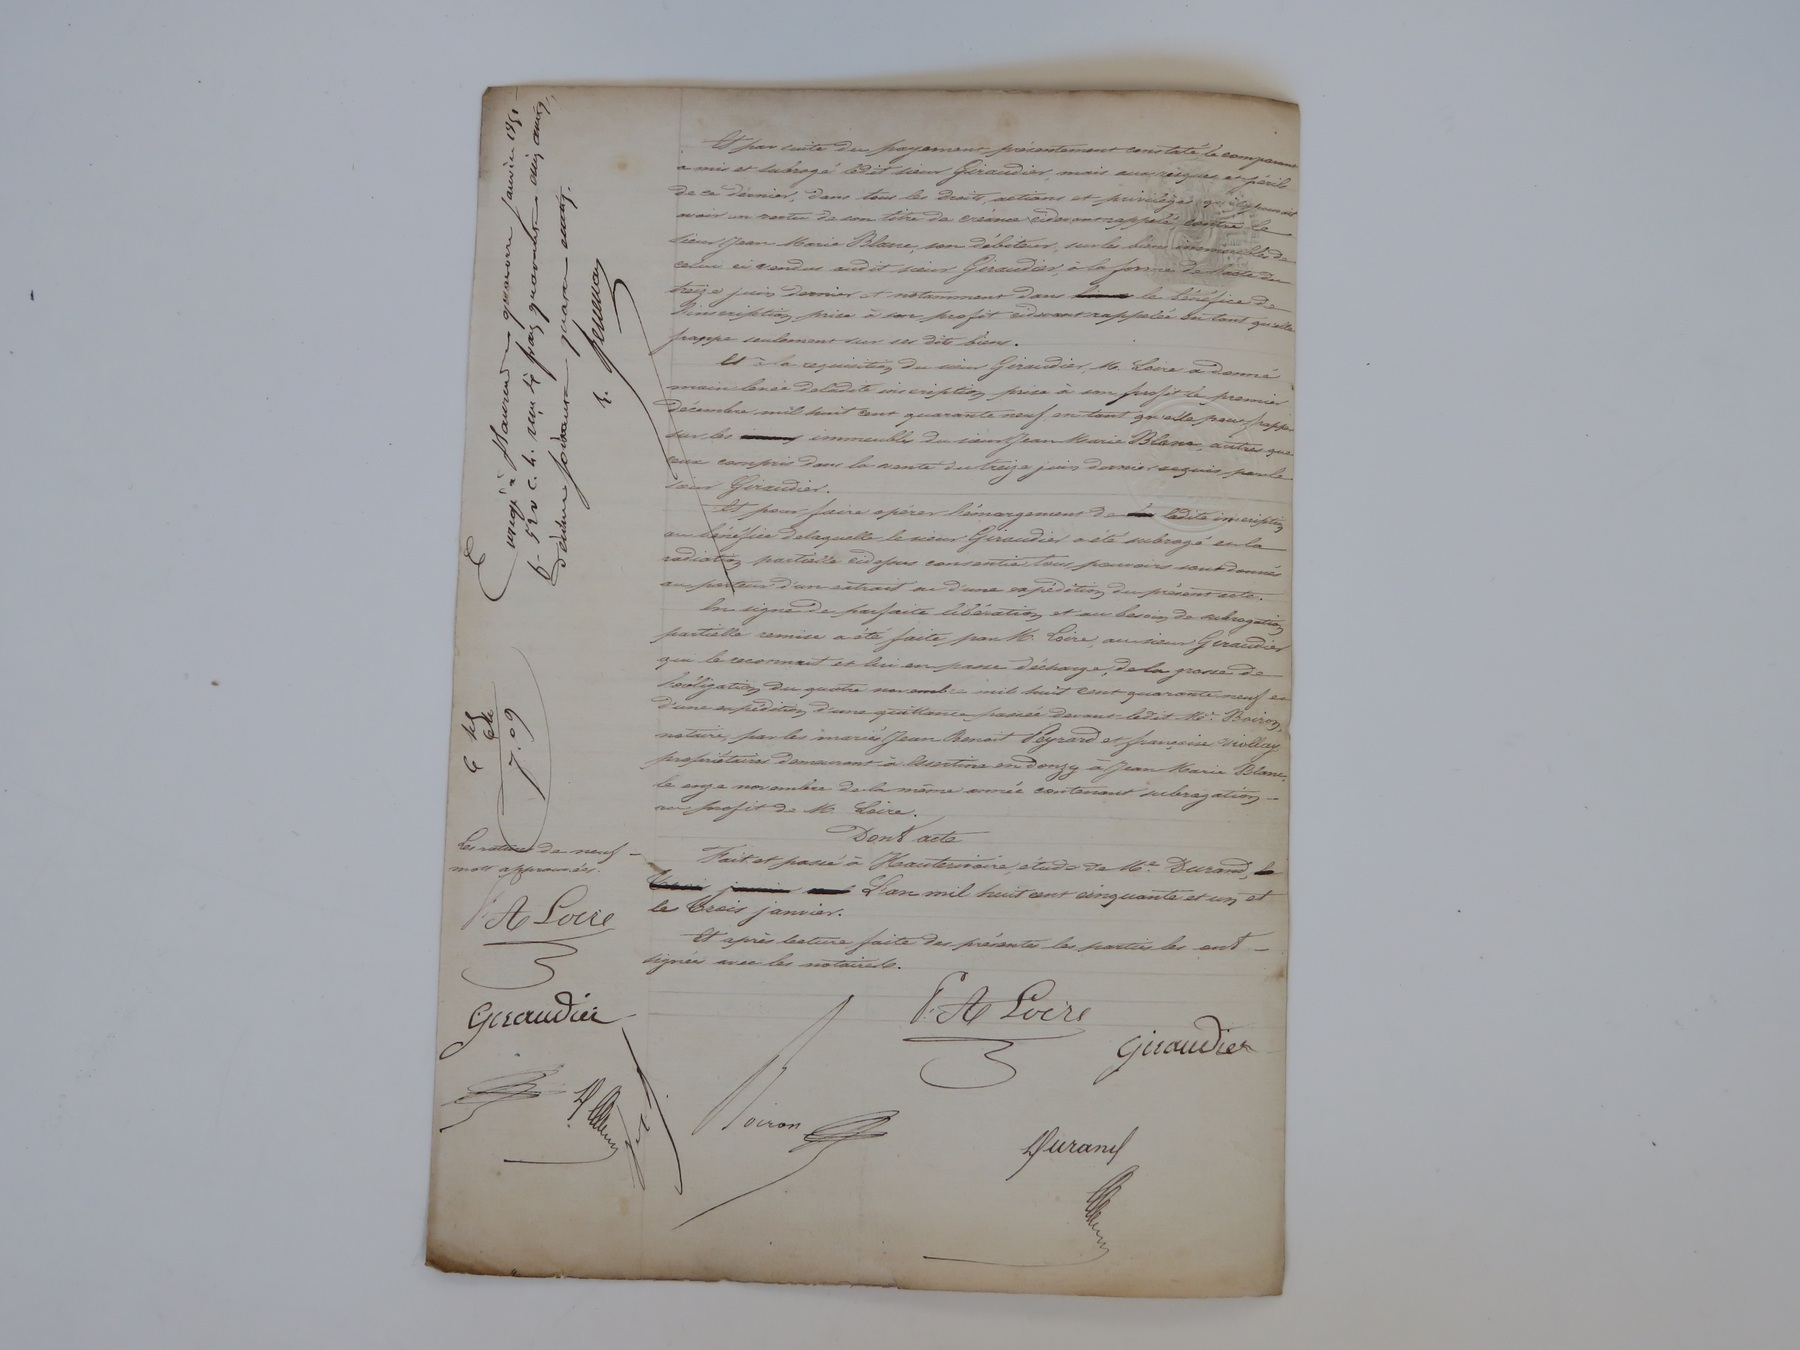 Et par suite du payement présentement constaté le comparant
a mis et subrogé ledit sieur Giraudier, mais aux risques et périls
de ce dernier, dans tous les droits, actions et privilèges qu'il pourrait
avoir en vertu de son titre de créance cidevant rappelé contre le
sieur Jean Marie Blanc, son débiteur, sur les biens immeubles de
celui ci vendus audit sieur Giraudier, à la forme de l'acte du
treize juin dernier et notamment dans le bénéfice de
l'inscription prise à son profit cidevant rappelée en tant qu'elle
frappe seulement sur ses dits biens.
Et à la requisition du sieur Giraudier, M. Loire a donné
main levée de ladite inscription prise à son profit le premier
décembre mil huit cent quarante neuf en tant qu'elle peut frapper
sur les immeubles du sieur Jean Marie Blanc, autres que
ceux compris dans la vente du treize juin dernier acquis par le
sieur Giraudier.
Et pour faire opérer l'émargement de ladite inscription
au bénéfice de laquelle le sieur Giraudier a été subrogé et la
radiation partielle cidessus consentie tous pouvoirs sont donnés
au porteur d'un extrait ou d'une expédition du présent acte.
En signe de parfaite libération et au besoin de subrogation
partielle remise a été faite par M. Loire, au sieur Giraudier
qui le reconnait et lui en passe décharge, de la grosse de
l'obligation du quatre novembre mil huit cent quarante neuf et
d'une expédition d'une quittance passée devant ledit Me. Boiron,
notaire, par les mariés Jean Benoit Peyrard et françoise Viollay
propriétaires demeurant à Essertine en Donzy à Jean Marie Blanc,
le onze novembre de la même année contenant subrogation
au profit de M. Loire.
Dont acte
Fait et passé à Hauterivoire, étude de Me. Durand, le
L'an mil huit cent cinquante et un et
le trois janvier.
Et après lecture faite des présentes les parties les ont
signées avec les notaires.
F. A Loire
Giraudier
Boiron
Durand
janvier 1851
5
52 v c. 4.
7.09
Les ratures de neuf
mots approuvées.
F. A Loire
Giraudier